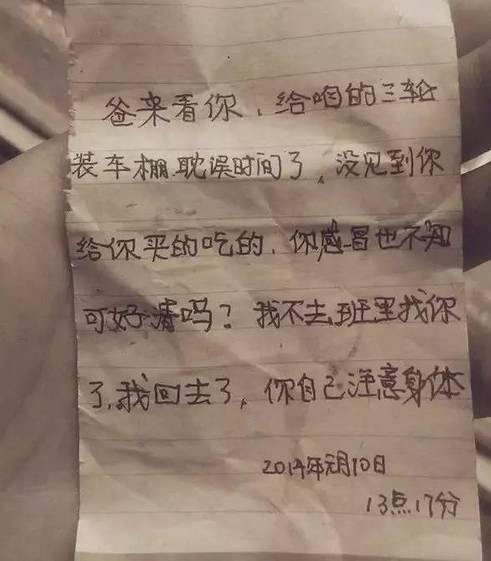 爸来看你，给咱的三轮
装车棚.耽误时间了，没见到你
给你买的吃的，你感冒也不知
可好清吗？我不去班里找你
了，我回去了，你自己注意身体
2014年元月10日
13点17分